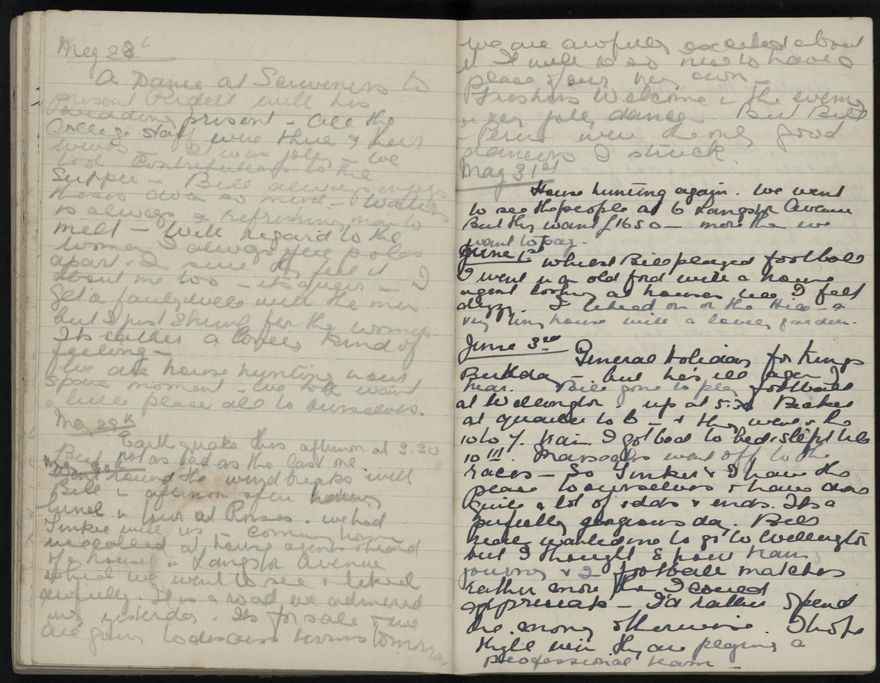 May 28th
A Dance at Scriveners to
present Riddell with his
present - All the
College staff were there & their
wives - It was jolly - we
took contributions to the
supper - Bill always enjoys
these does so much -
is always a refreshing man to
melt - With regard to the
women I always feel poles
apart. I sure they feel it
about me too - its queer - I
get on fairly well with the men
but I just for the women
Its rather a lonely kind of
feeling -
We are house hunting every
spare moment - we both want
a little place all to ourselves.
May 29th
Earthquake this afternoon at 3.30
But not as bad as the last one
round the wind breaks with
Bill in afternoon after having
lunch in at Rose's. we had
Tinker with us - Coming home
we called at house agents & heard
of a house in Langston Avenue
which we went to see & liked
awfully. It is a road we admired
only yesterday. Its for sale & we
are going to discuss terms tomorrow
we are awfully excited about
it I will be so nice to have a
place of our very own -
Freshers Welcome in the evening
a very jolly dance - But Bill
were the only good
dancers I struck.
May 31st
House hunting again. We went
to see the people at 6 Langston Avenue
But they want £1650 - more than we
want to pay.
June 1st whilst Bill played football
I went in an old ford with a house
agent looking at houses till I felt
dizzy. I liked on on the Hill - a
very tiny house with a lovely garden.
June 3rd General holiday for Kings
Birthday - but he's ill again I
hear. Bill gone to play football
at Wellington & up at 5.30 Breakfast
at quarter to 6 - & they were & the
10 to 7 train I got back to bed & slept till
10!!! Marsdens went off to the
races - So Tinker & I have the
place to ourselves & have done
quite a lot of odds & ends. Its a
perfectly gorgeous day. Bill
really wanted me to go to Wellington
but I thought 8 hours train
journey & 2 football matches
rather more than I could
appreciate - I'd rather spend
the money otherwise. I hope
they'll win they are playing a
professional team -